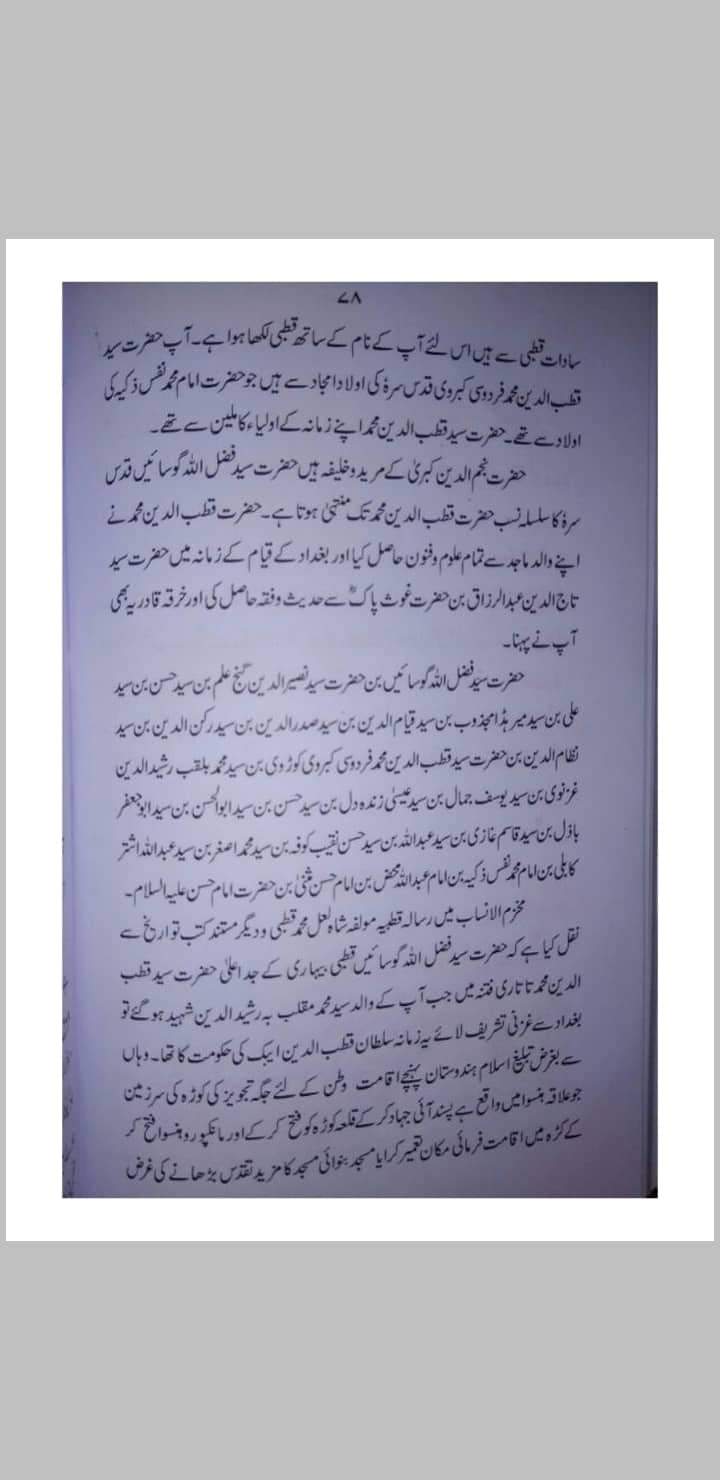 ۷۸
سادات قطبی سے ہیں اس لئے آپ کے نام کے ساتھ قطبی لکھا ہوا ہے۔ آپ حضرت سید
قطب الدین محمد فردوسی کبروی قدس سرہٗ کی اولاد امجاد سے ہیں جو حضرت امام محمد نفس ذکیہ کی
اولاد سے تھے۔ حضرت سید قطب الدین محمد اپنے زمانہ کے اولیاء کاملین سے تھے۔
حضرت نجم الدین کبریٰ کے مرید و خلیفہ ہیں حضرت سید فضل اللہ گوسائیں قدس
سرہٗ کا سلسلہ نسب حضرت قطب الدین محمد تک منتہیٰ ہوتا ہے۔ حضرت قطب الدین محمد نے
اپنے والد ماجد سے تمام علوم و فنون حاصل کیا اور بغداد کے قیام کے زمانہ میں حضرت سید
تاج الدین عبدالرزاق بن حضرت غوث پاکؓ سے حدیث و فقہ حاصل کی اور خرقہ قادریہ بھی
آپ نے پہنا۔
حضرت سید فضل اللہ گوسائیں بن حضرت سید نصیر الدین گنج علم بن سید حسن بن سید
علی بن سید میر بڈا مجذوب بن سید قیام الدین بن سید صدر الدین بن سید رکن الدین بن سید
نظام الدین بن حضرت سید قطب الدین محمد فردوسی کبروی کوڑوی بن سید محمد بلقب رشید الدین
غزنوی بن سید یوسف جمال بن سید عیسیٰ زندہ دل بن سید حسن بن سید ابوالحسن بن سید ابو جعفر
باذل بن سید قاسم غازی بن سید عبداللہ بن سید حسن نقیب کوفہ بن سید محمد اصغر بن سید عبداللہ اشتر
کابلی بن امام محمد نفس ذکیہ بن امام عبداللہ محض بن امام حسن مثنیٰ بن حضرت امام حسن علیہ السلام۔
مخزم الانساب میں رسالہ قطبیہ مولفہ شاہ لعل محمد قطبی و دیگر مستند کتب تواریخ سے
نقل کیا ہے کہ حضرت سید فضل اللہ گوسائیں قطبی بہاری کے جد اعلیٰ حضرت سید قطب
الدین محمد تاتاری فتنہ میں جب آپ کے والد سید محمد مقلب بہ رشید الدین شہید ہو گئے تو
بغداد سے غزنی تشریف لائے یہ زمانہ سلطان قطب الدین ایبک کی حکومت کا تھا۔ وہاں
سے بغرض تبلیغ اسلام ہندوستان پہنچے اقامت وطن کے لئے جگہ تجویز کی کوڑہ کی سرزمین
جو علاقہ ہنسوا میں واقع ہے پسند آئی جہاد کر کے قلعہ کوڑہ کو فتح کر کے اور مانکپور و ہنسوا فتح کر
کے کڑہ میں اقامت فرمائی مکان تعمیر کرایا مسجد بنوائی مسجد کا مزید تقدس بڑھانے کی غرض